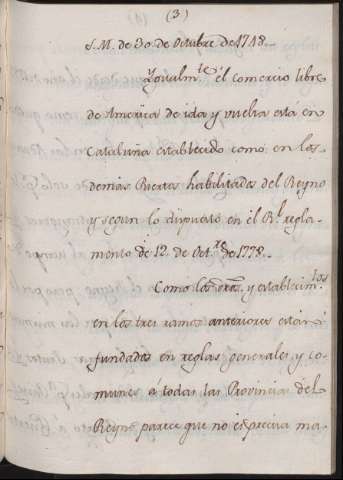 (3)
S.M. de 30 de Octubre de 1718.
Ygualmte el comercio libre
de America de ida y vuelta está en
Cataluña establecido como en los
demas Puertos habilitados del Reyno
y segun lo dispuesto en el Rl. regla-
mento de 12. de Octre. de 1778.
Como las y establecimtos
en los tres ramos anteriores están
fundadas en reglas generales y co-
munes a todas las Provincias del
Reyno parece que no es precisa ma-